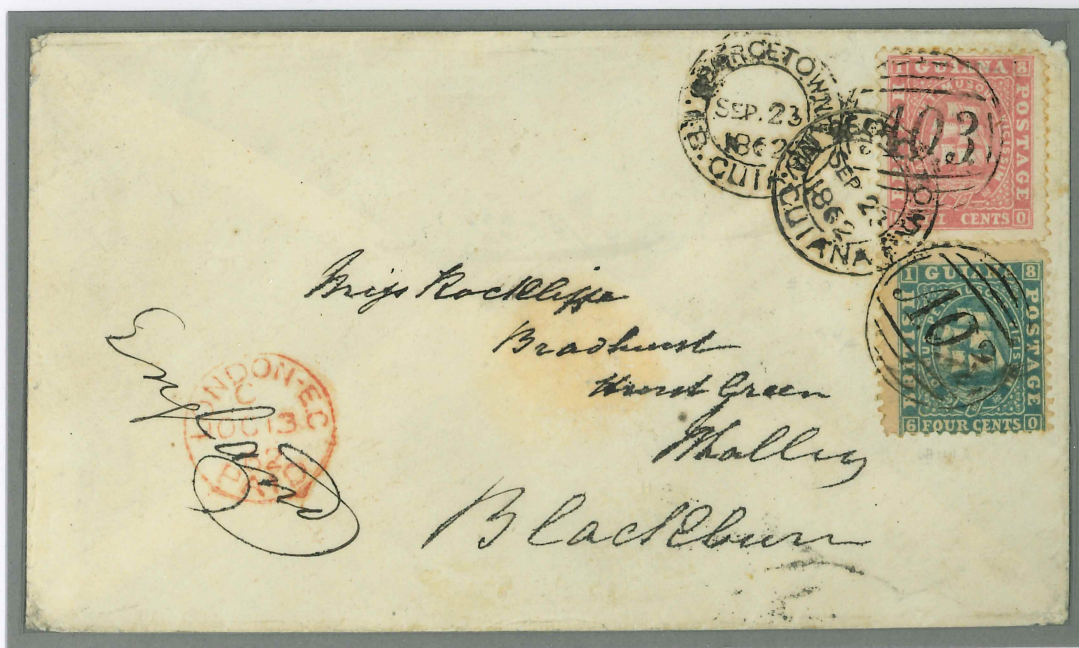 GEORGETOWN
SEP. 23
1862
B. GUIANA
SEP. 23
1862
GUIANA
1 GUIANA 8
POSTAGE
A03
CENTS 0
1 GUIANA 8
POSTAGE
A03
6 FOUR CENTS 0
Miss Rockliffe
Bradhurst
Hurst Green
Whalley
Blackburn
England
LONDON-E.C
C
OC 13
62
PAID